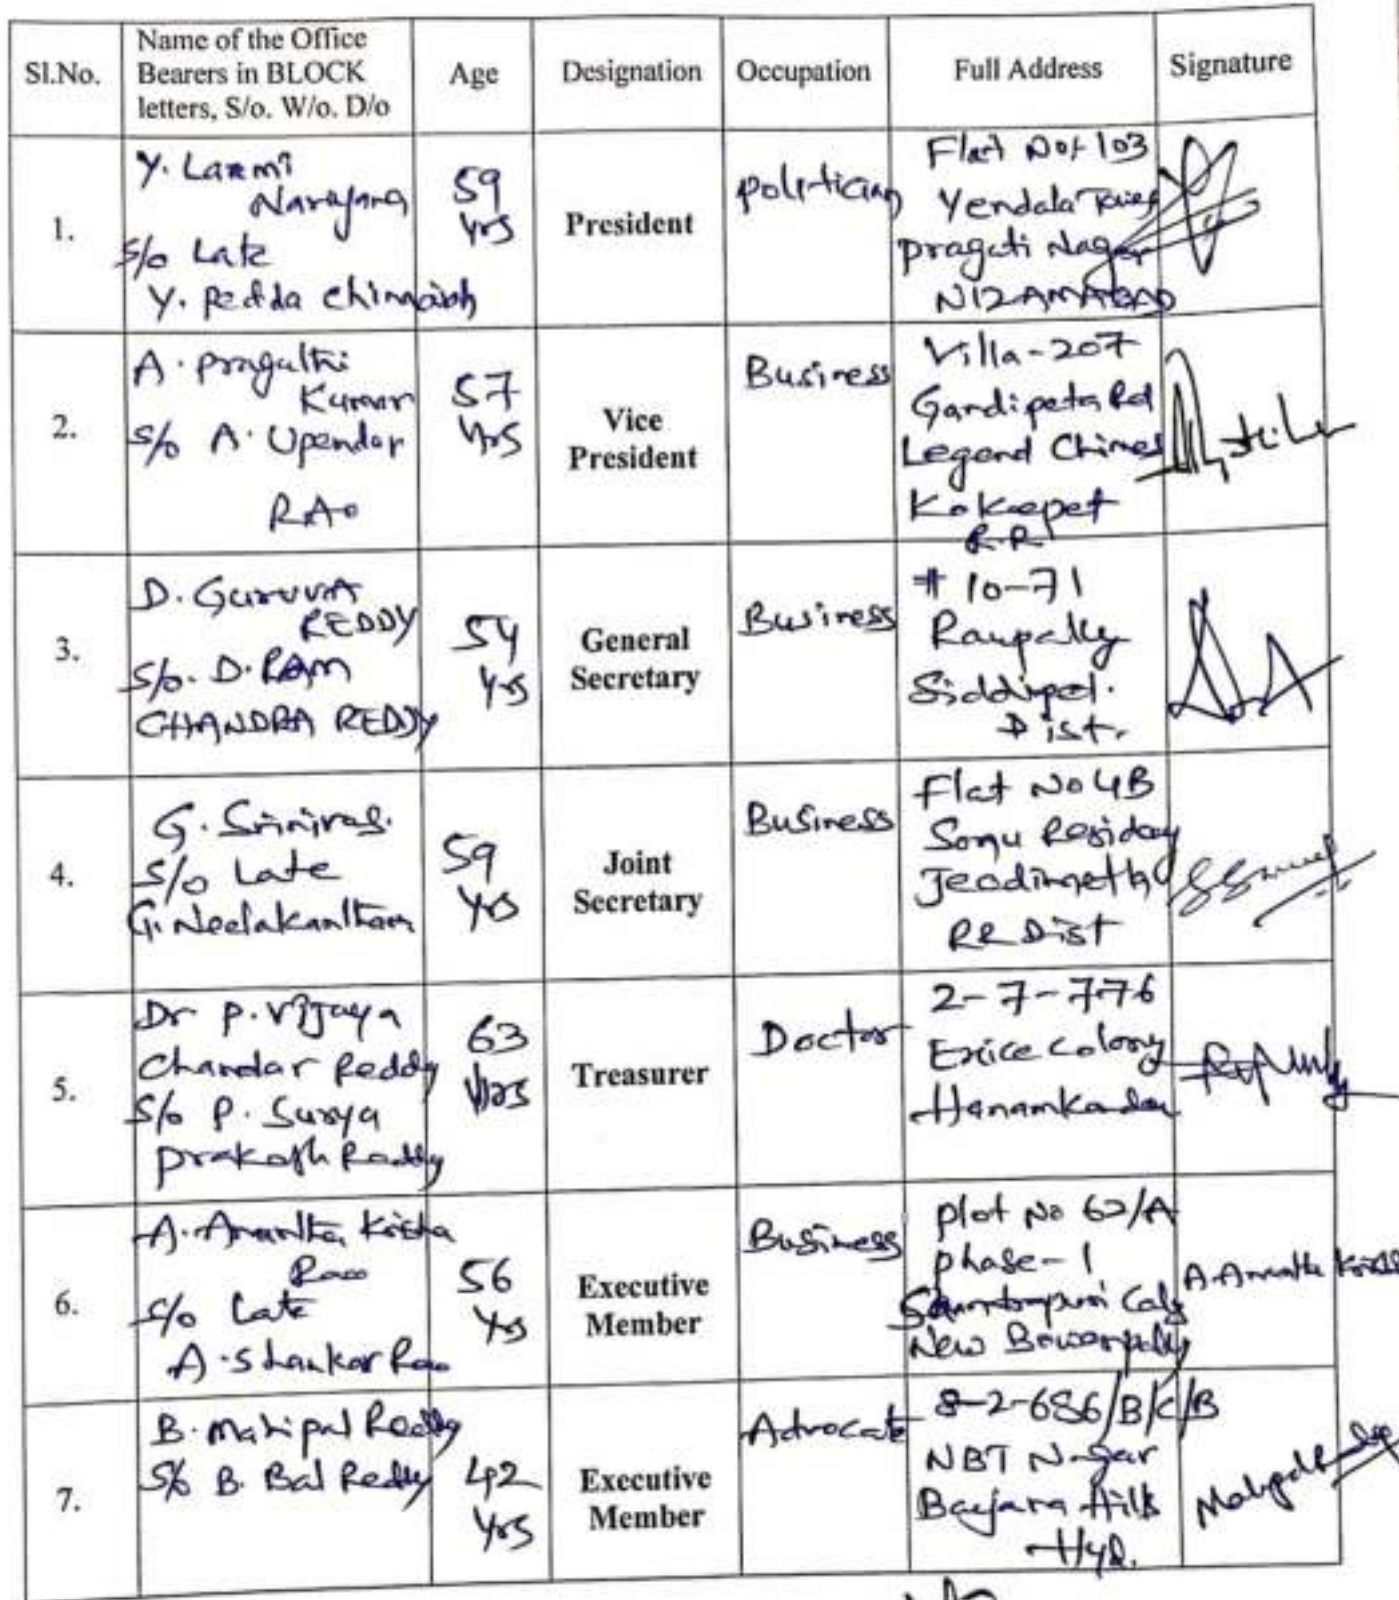 Sl.No.
Name of the Office
Bearers in BLOCK
letters, S/o. W/o. D/o
Age
Designation
Occupation
Full Address
Signature
1.
Y. Laxmi
Narayana
S/o Late
Y. Pedda Chinnaiah
59
yrs
President
politician
Flat No 103
Yendala
pragati Nagar
NIZAMABAD
2.
A. Pragathi
Kumar
S/o A. Upendar
RAo
57
Yrs
Vice
President
Business
Villa-207
Gandipeta Rd
Legend Chimes
Kokapet
R.R
3.
D. GURUVA
REDDY
S/o. D. RAM
CHANDRA REDDY
54
yrs
General
Secretary
Business
# 10-71
Siddipet.
Dist.
4.
G. Srinivas.
S/o Late
G. Neelakantham
59
Yrs
Joint
Secretary
Business
Flat No 4B
Sonu Residency
Jeedimetla
RR Dist
5.
Dr P. Vijaya
Chandar Reddy
S/o P. Surya
prakash Reddy
63
Yrs
Treasurer
Doctor
2-7-776
Excise Colony
Hanamkonda
6.
A. Anantha Krishna
Rao
S/o Late
A. Shankar Rao
56
Yrs
Executive
Member
Business
plot No 62/A
phase-1
New Bowenpally
A. Anantha
7.
B. Mahipal Reddy
S/o B. Bal Reddy
42
Yrs
Executive
Member
Advocate
8-2-686/B/C/B
NBT Nagar
Banjara Hills
Hyd.